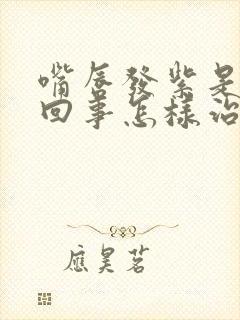 嘴唇發紫是
回事怎樣治
應昊茗